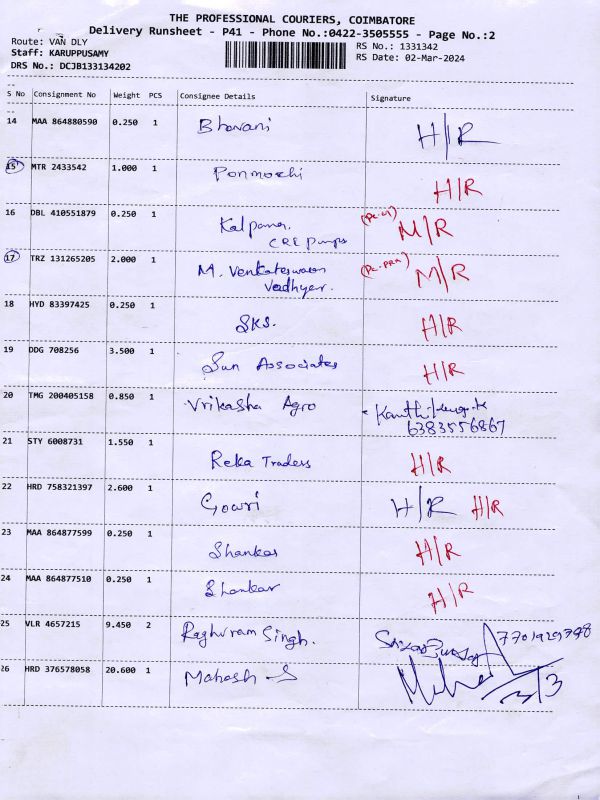 THE PROFESSIONAL COURIERS, COIMBATORE
Delivery Runsheet - P41 - Phone No.:0422-3505555 - Page No.:2
Route: VAN DLY
Staff: KARUPPUSAMY
DRS No.: DCJB133134202
RS No.: 1331342
RS Date: 02-Mar-2024
S No Consignment No Weight PCS Consignee Details Signature
14 MAA 864880590 0.250 1 Bhavani H/R
15 MTR 2433542 1.000 1 Ponmozhi H/R
16 DBL 410551879 0.250 1 Kalpana. M/R
CRE Pumps
17 TRZ 131265205 2.000 1 M. Venkateswaran M/R
Vadhyar.
18 HYD 83397425 0.250 1 SKS. H/R
19 DDG 708256 3.500 1 Sun Associates H/R
20 TMG 200405158 0.850 1 Vrikasha Agro
6383556867
21 STY 6008731 1.550 1 Reka Traders H/R
22 HRD 758321397 2.600 1 Gowri H/R H/R
23 MAA 864877599 0.250 1 Shankar H/R
24 MAA 864877510 0.250 1 Shankar H/R
25 VLR 4657215 9.450 2 Raghuram Singh.
26 HRD 376578058 20.600 1 Mahesh - S 2/3